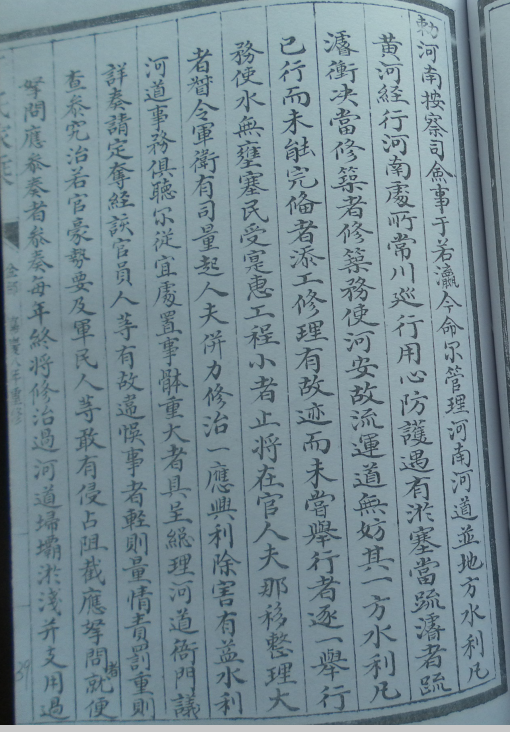 勅河南按察司僉事于若瀛今命尔管理河南河道並地方水利凡
黄河經行河南處所常川巡行用心防護遇有淤塞當疏濬者疏
濬衝决當修築者修築務使河安故流運道無妨其一方水利凡
已行而未能完俻者添工修理有故迹而未嘗舉行者逐一舉行
務使水無壅塞民受寔惠工程小者止將在官人夫那移整理大
者督令軍衛有司量起人夫併力修治一應興利除害有益水利
河道事務俱聽尔從宜處置事體重大者具呈総理河道衙門議
詳奏請定奪經該官員人等有故違悞事者輕則量情責罰重則
查叅究治若官豪勢要及軍民人等敢有侵占阻截應拏問者就便
拏問應叅奏者叅奏每年終將修治過河道埽壩淤淺并支用過
39